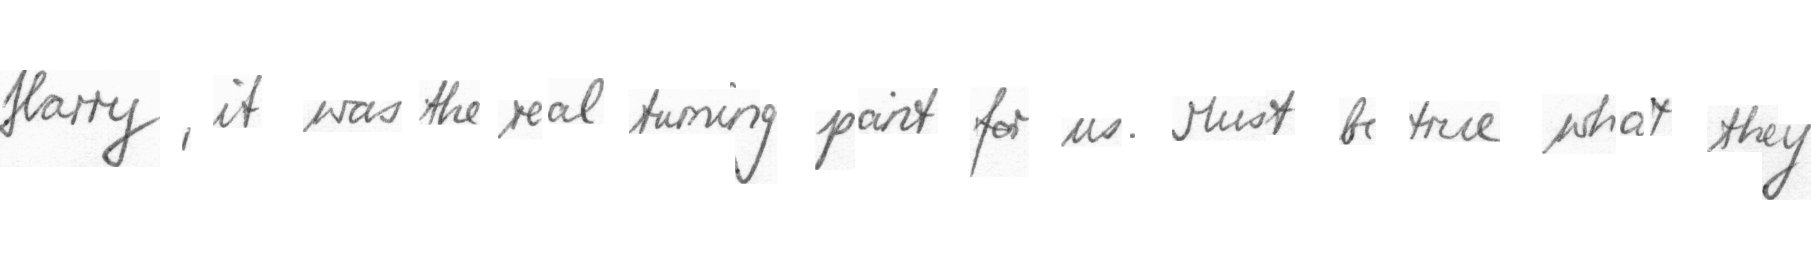 Harry, it was the real turning point for us. Must be true what they